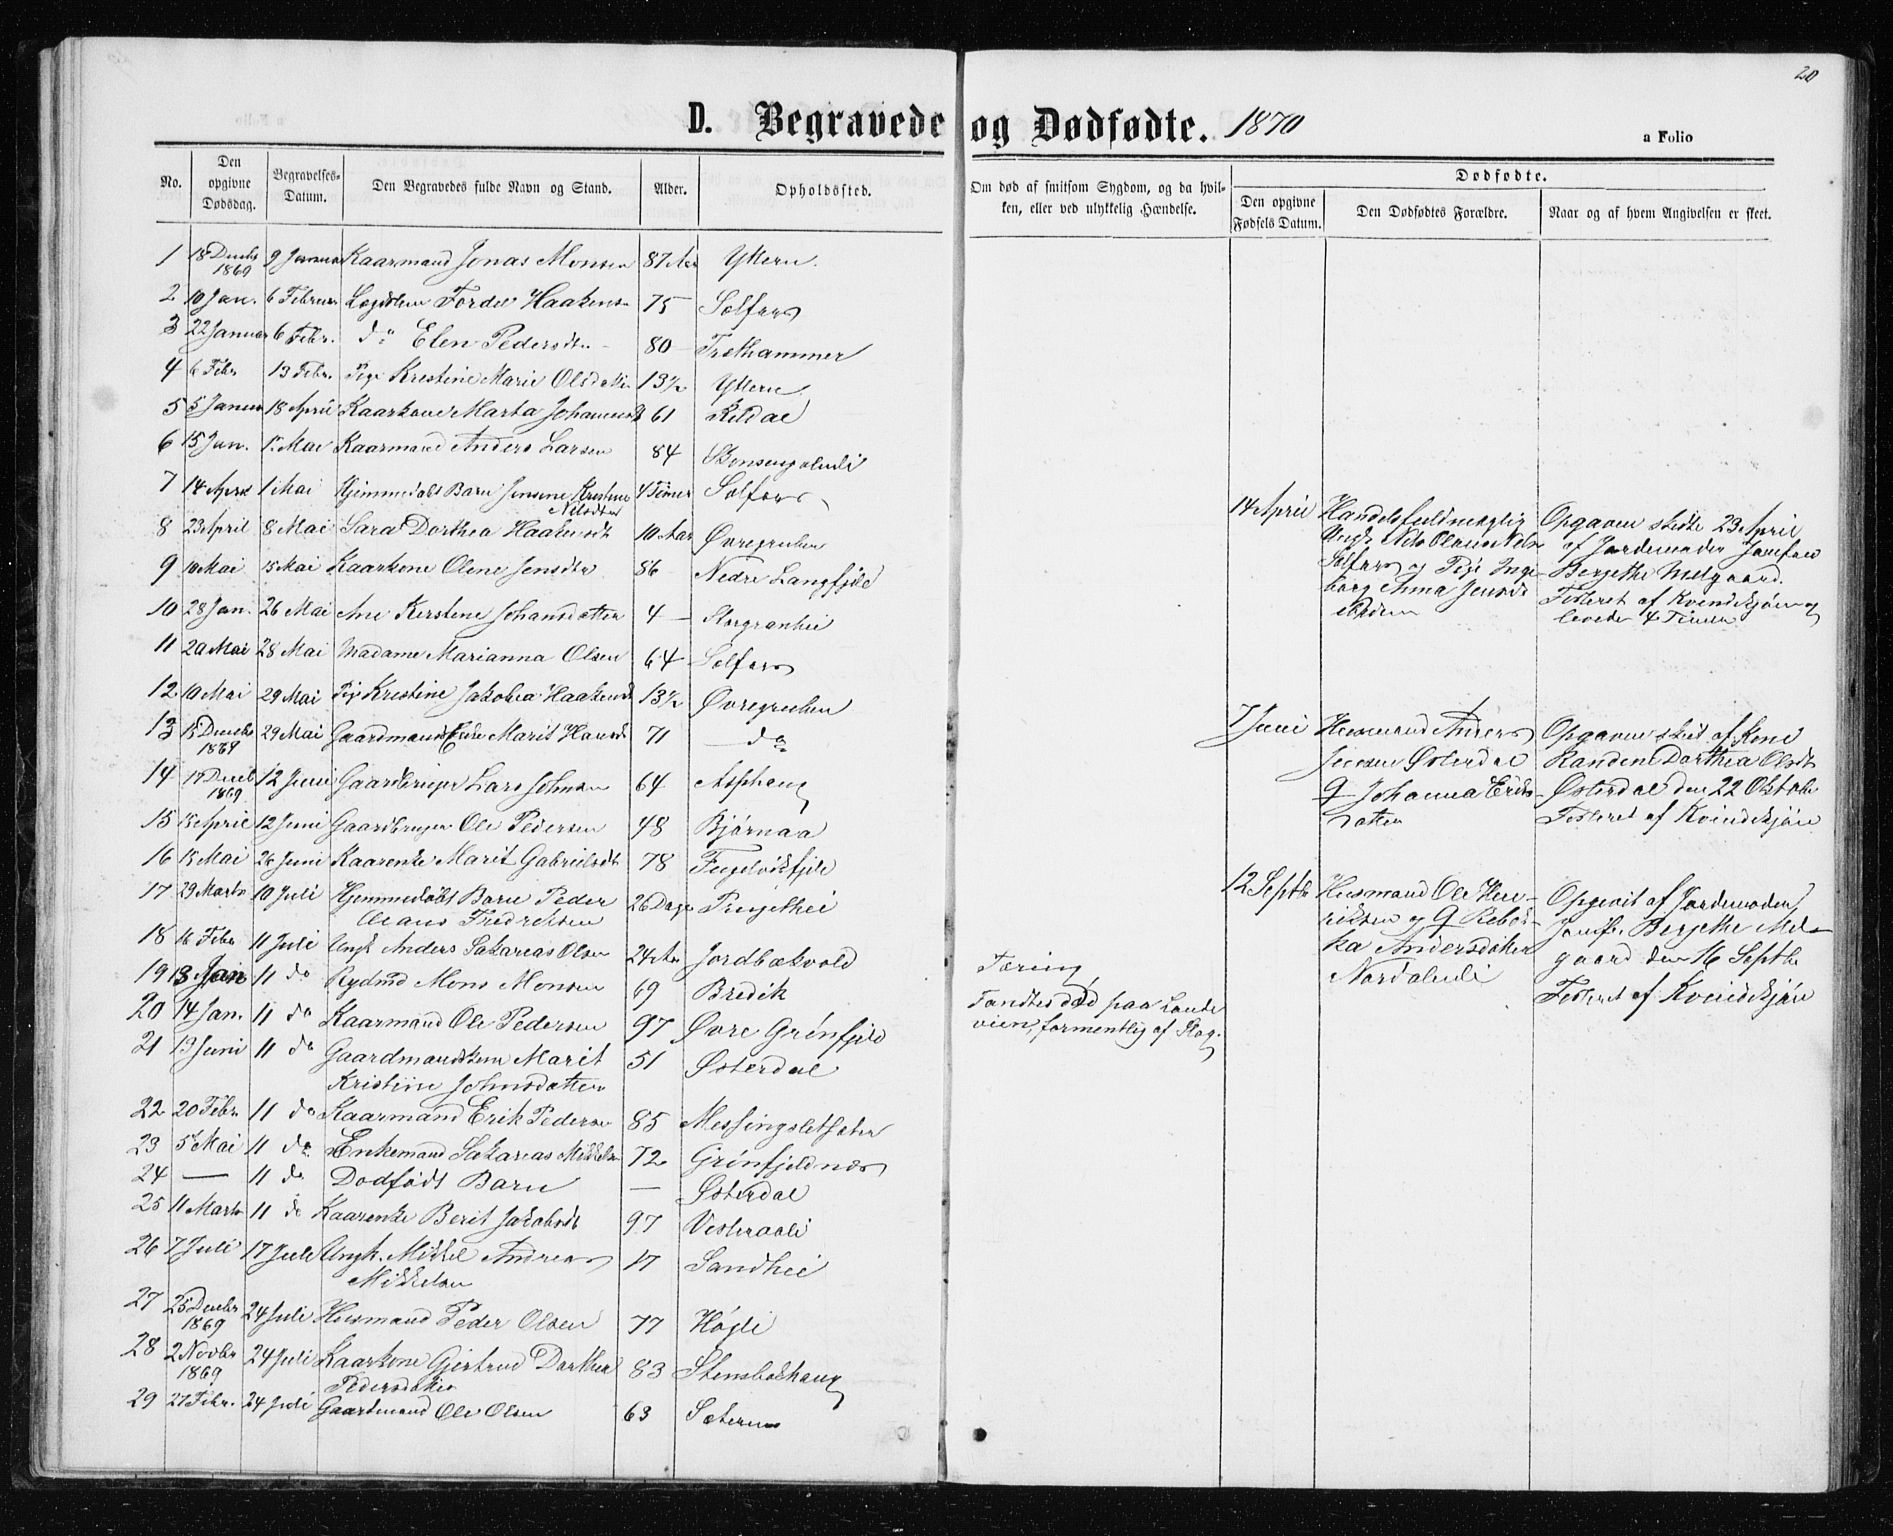 20
D. Begravede og Dødfødte. 1870
a Folio
No. Den opgivne Dødsdag. Begravelses-Datum. Den Begravedes fulde Navn og Stand. Alder. Opholdssted.
Om død af smitsom Sygdom, og da hvilken, eller ved ulykkelig Hændelse.
Dødfødte.
Den opgivne Fødsels Datum. Den Dødfødtes Forældre. Naar og af hvem Angivelsen er skeet.
1 18 Decbr 1869 9 Januar Kaarmand Jonas Monsen 87 Aar Ytteren
2 10 Jan. 6 Februar Lægdslem Haakens 75 Selfors
3 22 Januar 6 Febr. do Elen Pedersdtr 80 Træthammer
4 6 Febr 13 Febr. Pige Kristine Marie Olsdatter 13½ Ytteren
5 5 Januar 18 April Kaarkone Marta Johannesd 61 Kildal
6 15 Jan. 1 Mai Kaarmand Anders Larsen 84
7 14 April 1 Mai Hjemmedøbt Barn Jensine Kristine Nilsdtter 4 Timer Selfors
8 23 April 8 Mai Sara Dorthea Haakensdt 10 Aar Øvregruben
9 10 Mai 15 Mai Kaarkone Olene Jensdtr 86 Nedre Langfjeld
10 28 Jan. 26 Mai Ane Kerstene Johansdatter 4 — Storgranhei
11 20 Mai 28 Mai Madame Marianna Olsen 64 Selfors
12 10 Mai 29 Mai Pige Kristine Jakobea Haakensd 13½ Øvregruben
13 15 Decbr 1869 29 Mai Gaardmands Enke Marit Hansd 71 — do
14 15 Decb 1869 12 Juni Gaardbruger Lars Johnsen 64 Asphaug
15 13 April 12 Juni Gaardbruger Ole Pedersen 48 Bjørnaa
16 13 Mai 26 Juni Kaarenke Marit Gabrielsdt 78 Fugelvikfjeld
17 29 Marts 10 Juli Hjemmedøbt Barn Peder Olaus Fredriksen 26 Dage
18 16 Febr 11 Juli Ungk Anders Sakarias Olsen 24 Aar Jordbækvold
19 13 Jan 11 do Rydmd Mons Monsen 69 Bredik
20 14 Jan. 11 do Kaarmand Ole Pedersen 97 Øvre Grønfjeld
21 13 Juni 11 do Gaardmandskone Marit Kristine Johnsdatter 51 Østerdal
22 20 Febr. 11 do Kaarmand Erik Pedersen 85 Messingsletsæter
23 5 Mai 11 do Enkemand Sakarias Mikkels 72 Grønfjeldnæs
24 — 11 do Dødfødt Barn — Østerdal
25 11 Marts 11 do Kaarenke Berit Jakobsdt 97 Vesteraali
26 7 Juli 17 Juli Ungk. Mikkel Andreas Mikkelsen 17 Sandhei
27 25 Decbr 1869 24 Juli Husmand Peder Olsen 77 Høgli
28 2 Novbr 1869 24 Juli Kaarkone Gjertrud Dorthea Pedersdatter 83 Stensbækhaug
29 27 Febr. 24 Juli Gaardmand Ole Olsen 63 Sæteren
Tæring
Fandtes død paa Lande
veien, formentlig af Slag.
14 April Handelsfuldmægtig
Ungk Nils Olaus Nels
Selfors og Pige Inge
borg Anna Jensdt
Opgaven skedte 23 April
af Jordemoder Jomfru
Bergethe Melgaard.
Testeret af Kvindekjøn og
levede 4 Timer
7 Juni Husmand Anders
Jensen Østerdal
og Johanna Eriks
datter
Opgaven skeet af Kone
Randine Dorthea Olsdt
Østerdal den 22 Oktobr
Testeret af Kvindekjøn
12 Septbr Husmand Ole Hen-
riksen og Q Rebek-
ka Andersdatter
Nordalmli
Opgivet af Jordemoder
Jomfr. Bergethe Mel-
gaard den 16 Septbr
Testeret af Kvindekjøn